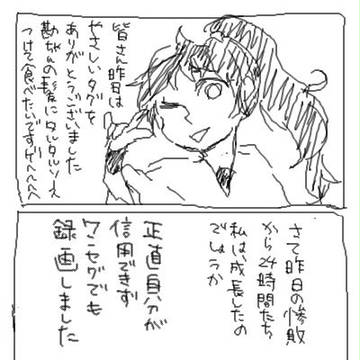 皆さん昨日は
やさしいタグを
ありがとうございました
勘ちゃんの
にタルタルソース
つけて食べたいですゲヘヘヘヘ
さて昨日の惨敗
から24時間たち
私は、成長したの
でしょうか
正直自分が
信用できず
ワンセグでも
録画しました